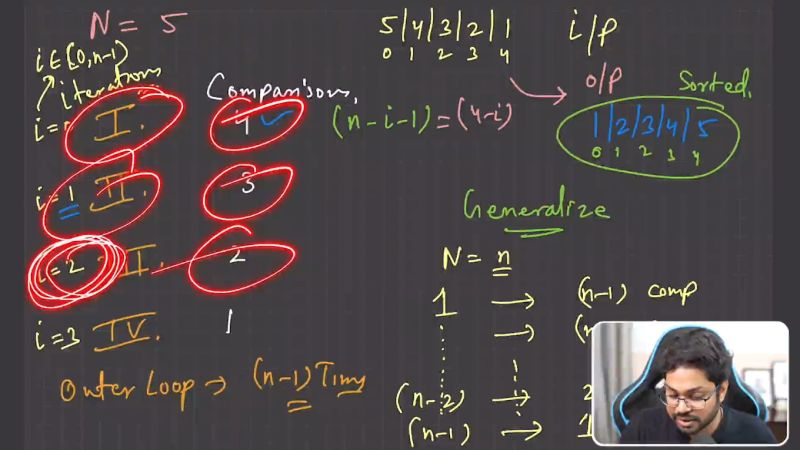 N = 5
5|4|3|2|1 i/p
0 1 2 3 4
i ∈ [0, n-1)
iterations
Comparisons,
o/p Sorted,
i = I. 4 ✓ (n-i-1) = (4-i)
1|2|3|4|5
0 1 2 3 4
i = 1 II. 3
Generalize
i = 2 II. 2
N = n
1 → (n-1) comp
i = 3 IV. 1
→ (n
Outer Loop → (n-1) Times
(n-2) → 2
(n-1) → 1